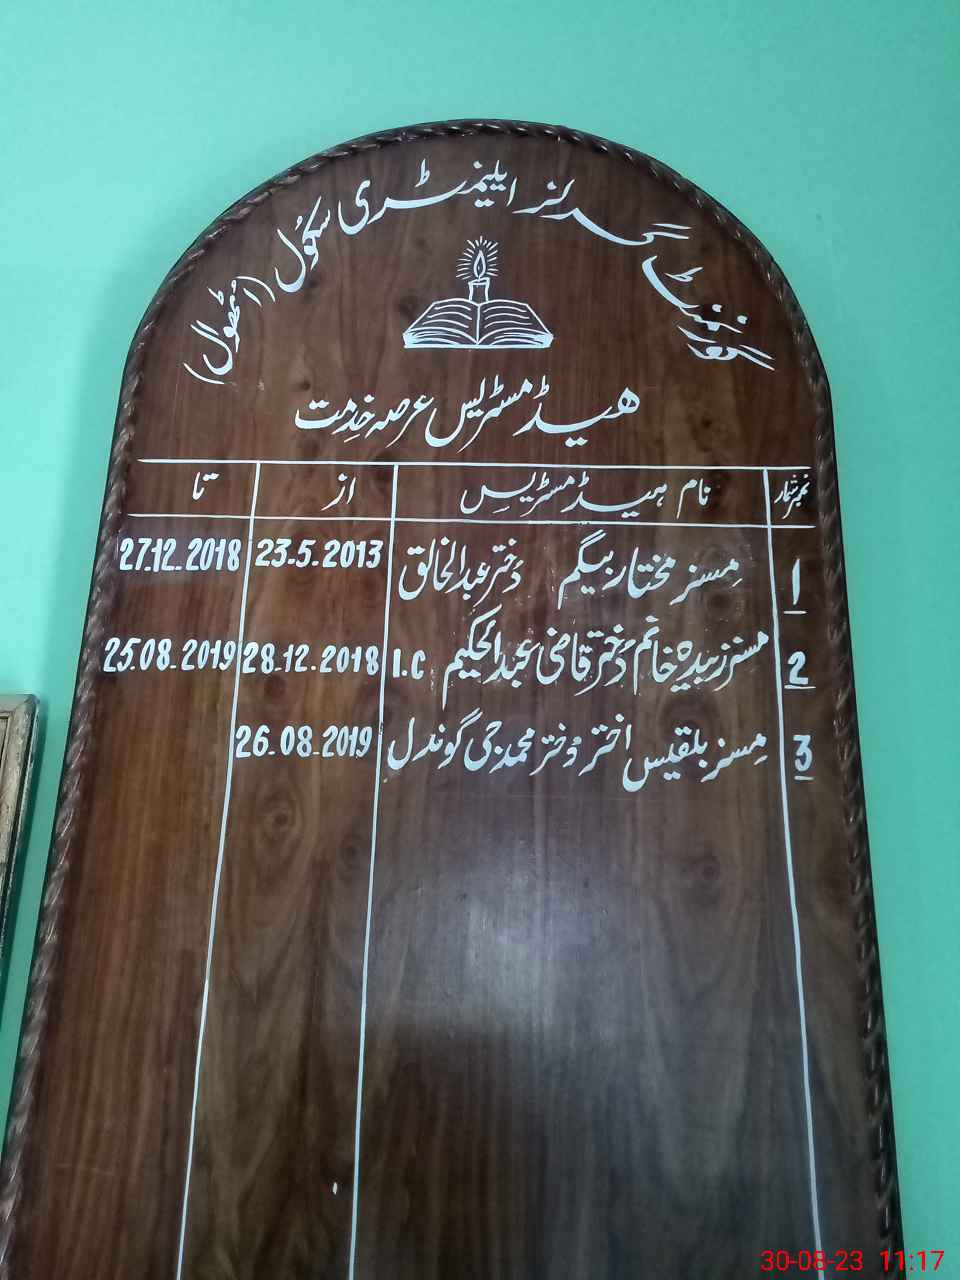 گورنمنٹ گرلز ایلیمنٹری سکول (اٹھوال)
ھیڈ مسٹریس عرصہ خدمت
نمبر شمار نام ہیڈ مسٹریس از تا
1 مسنز مختار بیگم دُختر عبدالخالق 23.5.2013 27.12.2018
2 مسنز زبیدہ خانم دُختر قاضی عبدالحکیم I.C 28.12.2018 25.08.2019
3 مسنز بلقیس اختر دُختر محمد جی گوندل 26.08.2019
30-08-23 11:17